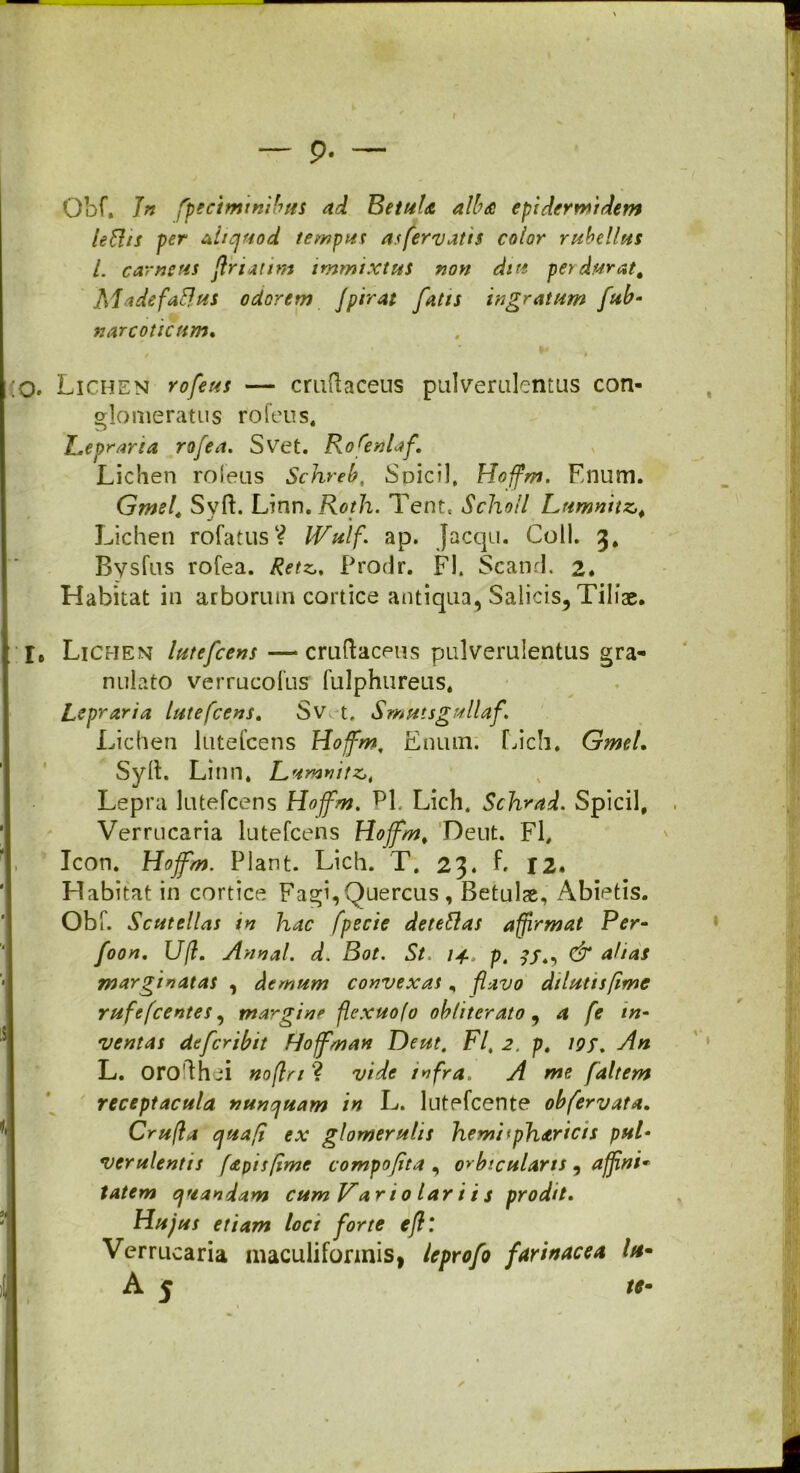 — 9. —
Obſ. In ſpeciminibus ad Betulæ albæ epidermidem
lectis per aliquod tempus asſervatis color rubellus
l. carneus ſtriatim immixtus non diu perdurat.
Madefactus odorem ſpirat ſatis ingratum ſub-
narcoticum.
0. LICHEN roſeus — cruſtaceus pulverulentus con-
glomeratus roſeus.
Lepraria roſea. Svet. Roſenlaf.
Lichen roſeus Schreb. Spicil. Hoffm. Enum.
Gmel. Syſt. Linn. Roth. Tent. Scholl Lumnitz.
Lichen roſatus? Wulf. ap. Jacqu. Coll. 3.
Bysſus roſea. Retz. Prodr. Fl. Scand. 2.
Habitat in arborum cortice antiqua, Salicis, Tiliæ.
1. LICHEN luteſcens — cruſtaceus pulverulentus gra-
nulato verrucoſus ſulphureus.
Lepraria luteſcens. Sv t. Smutsgullaf.
Lichen luteſcens Hoffm. Enum. Lich. Gmel.
Syſt. Linn. Lumnitz.
Lepra luteſcens Hoffm. Pl. Lich. Schrad. Spicil.
Verrucaria luteſcens Hoffm. Deut. Fl.
Icon. Hoffm. Plant. Lich. T. 23. f. 12.
Habitat in cortice Fagi, Quercus, Betulæ, Abietis.
Obſ. Scutellas in hac ſpecie detectas affirmat Per-
ſoon. Uſt. Annal. d. Bot. St. 14. p. 35., & alias
marginatas, demum convexas, flavo dilutisſime
rufeſcentes, margine flexuoſo obliterato, a ſe in-
ventas deſcribit Hoffman Deut. Fl. 2. p. 195. An
L. oroſthei noſtri? vide infra. A me ſaltem
receptacula nunquam in L. luteſcente obſervata.
Cruſta quaſi ex glomerulis hemiſphæricis pul-
verulentis ſæpisſime compoſita, orbicularis, affini-
tatem quandam cum Variolariis prodit.
Hujus etiam loci forte eſt:
Verrucaria maculiformis, leproſo farinacea lu-
A 5 te-